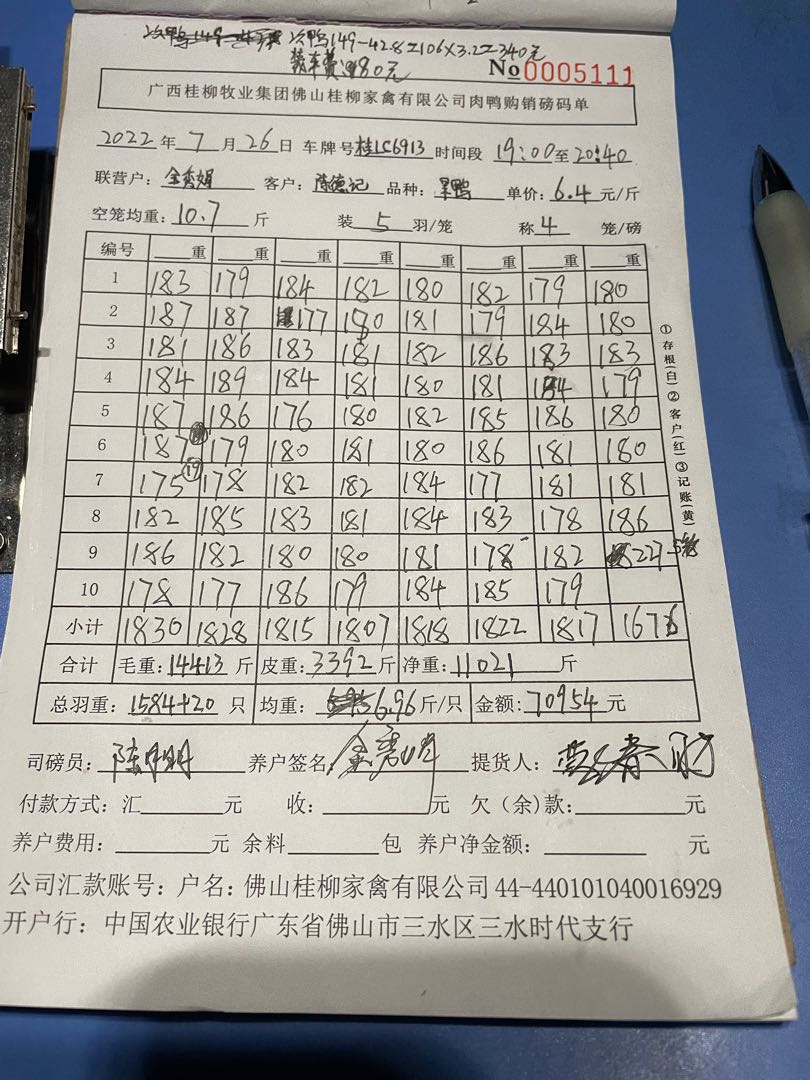 次鸭149-42.8=106×3.2=340元
装车费:180元
No 0005111
广西桂柳牧业集团佛山桂柳家禽有限公司肉鸭购销磅码单
2022年7月26日 车牌号桂LC6913 时间段 19:00至20:40
联营户: 客户:陈德记 品种: 单价:6.4元/斤
空笼均重:10.7斤 装5羽/笼 称4笼/磅
编号 重 重 重 重 重 重 重 重
1 183 179 184 182 180 182 179 180
2 187 187 177 180 181 179 184 180
3 181 186 183 181 182 186 183 183
4 184 189 184 181 180 181 184 179
5 187 186 176 180 182 185 186 180
6 187 179 180 181 180 186 181 180
7 175 ⑲ 178 182 182 184 177 181 181
8 182 185 183 181 184 183 178 186
9 186 182 180 180 181 178 182 227 5笼
10 178 177 186 179 184 185 179
小计 1830 1828 1815 1807 1818 1822 1817 1676
合计 毛重:14413斤 皮重:3392斤 净重:11021斤
总羽重:1584+20只 均重:6.96斤/只 金额:70954元
司磅员: 养户签名: 提货人:
付款方式:汇 元 收: 元 欠(余)款: 元
养户费用: 元 余料 包 养户净金额: 元
公司汇款账号:户名:佛山桂柳家禽有限公司 44-440101040016929
开户行:中国农业银行广东省佛山市三水区三水时代支行
①存根(白)②客户(红)③记账(黄)